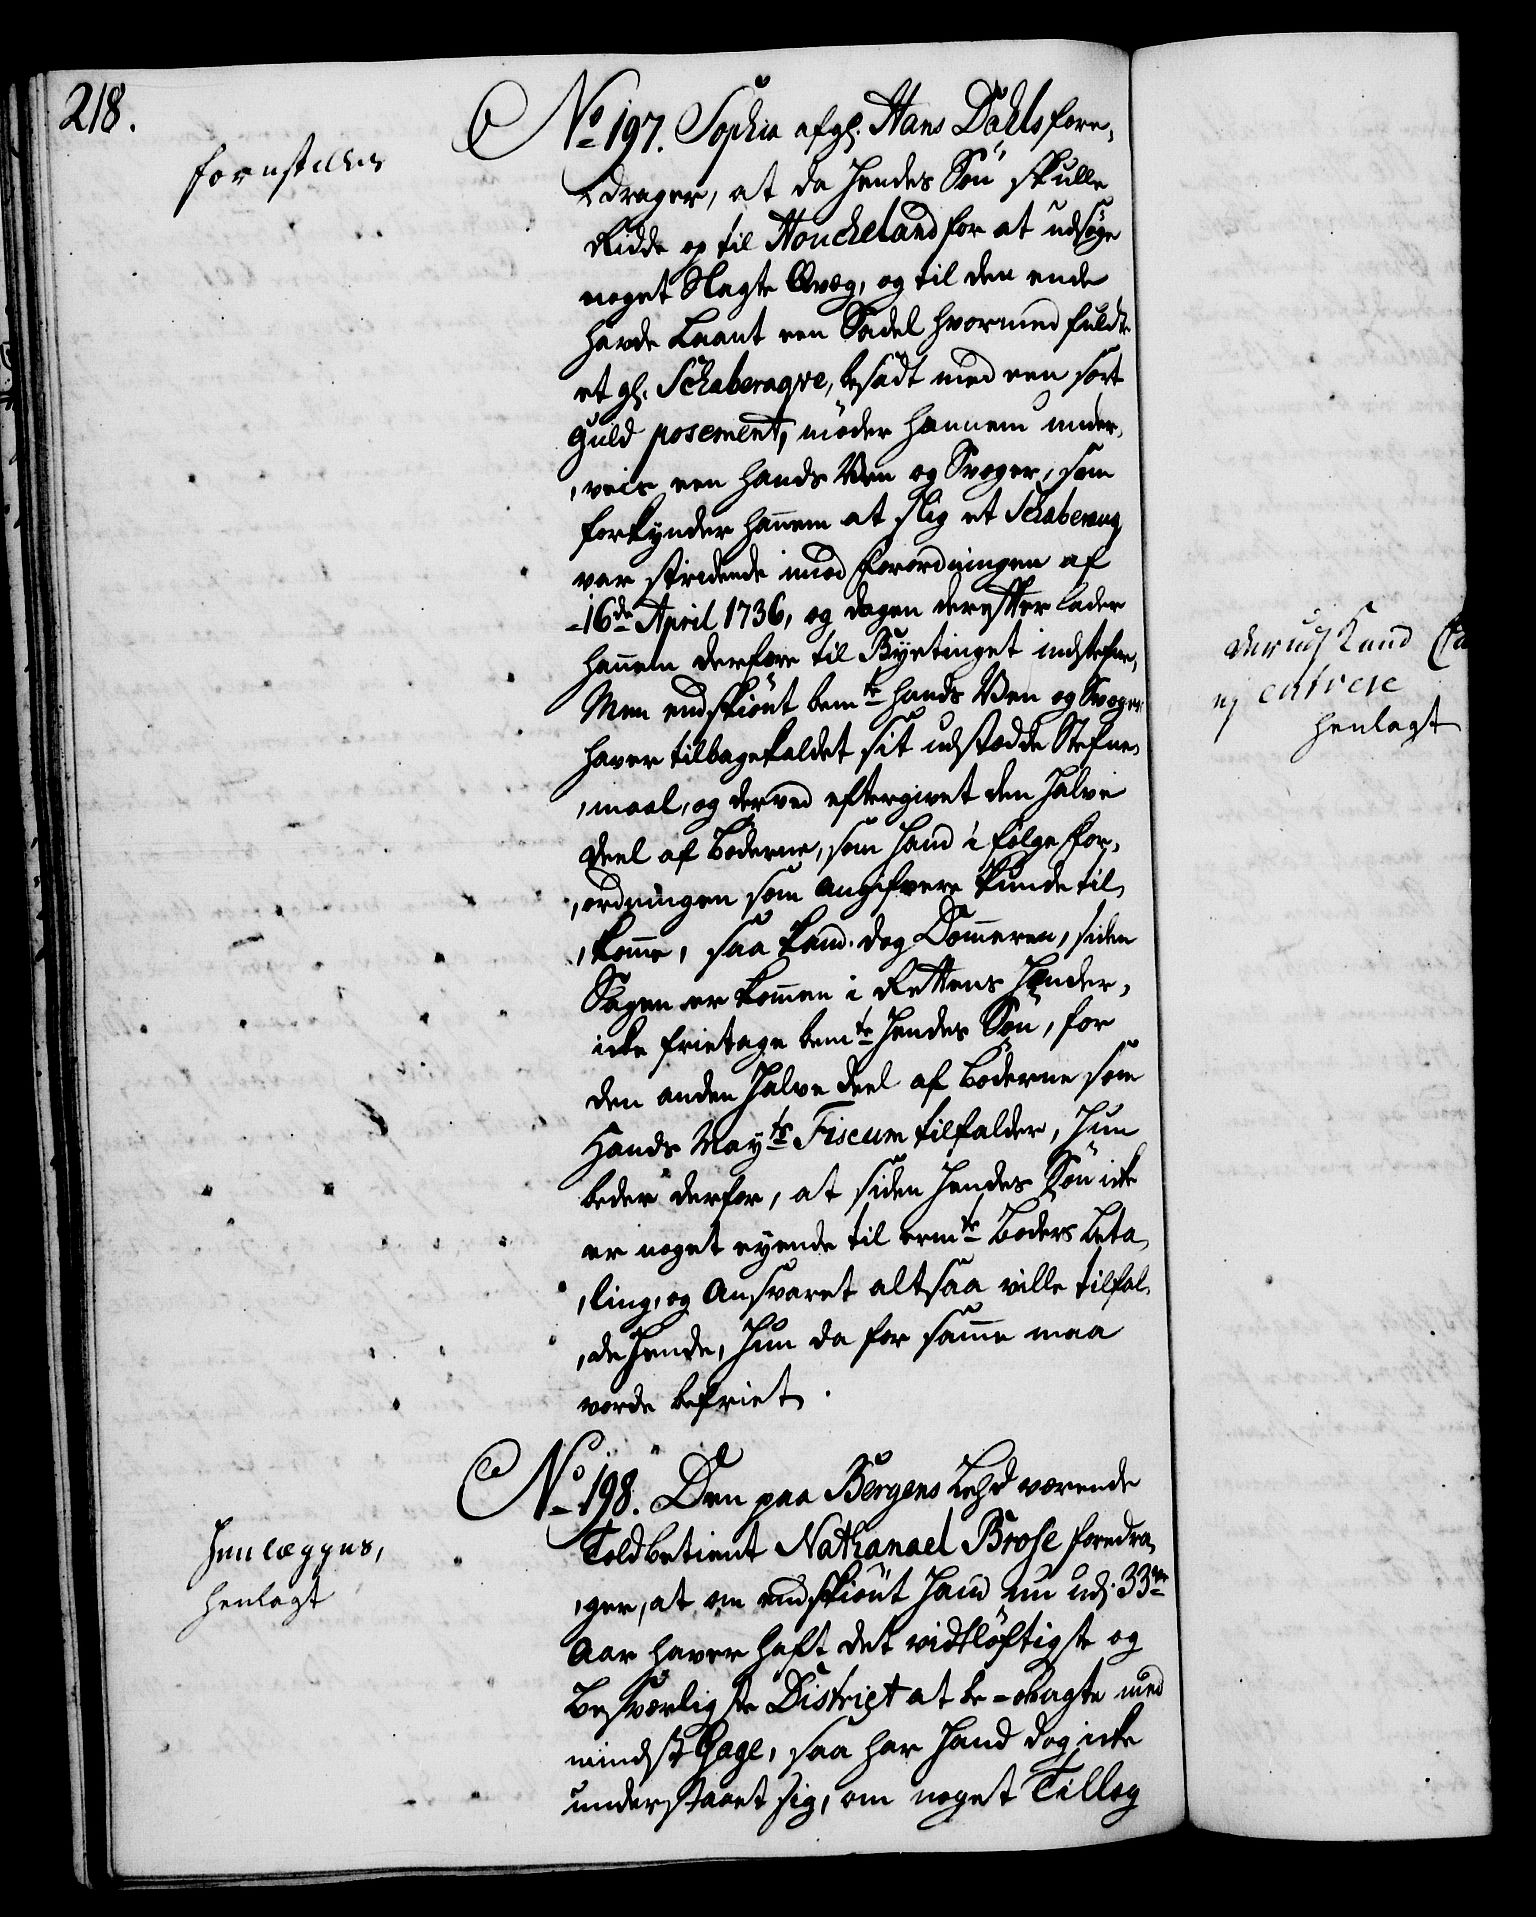 218.
forestilles
No 197. Sophia afgl. Hans Dahls fore-
drager, at da hendes Søn skulle
Ridde op til Houcheland for at udsøge
noget Slagte Qvæg, og til den ende
havde Laant een Sadel hvormed fuldte
et gl. Schaberaqve, besadt med een sort
Guld posement, møder hannem under-
veis een hands Ven og Svoger, som
forkynder hañem at slig et Schaberaq
var stridende imod forordningen af
16de April 1736, og dagen derefter lader
hañem derfore til Byetinget indstefne,
Men endskiønt bemte hands Ven og Svoger
haver tilbagekaldet sit udstædde Stefne-
maal, og derved eftergivet den halve
deel af Bøderne, som hand i følge for-
ordningen som Angifvere kunde til-
komme, saa kand dog Dom̃eren, siden
Sagen er kom̃en i Rettens Hænder,
icke frietage bemte hendes Søn, for
den anden halve deel af Bøderne som
Hands Mayts Fiscum tilfalder, hun
beder derfor, at siden hendes Søn icke
er noget eyende til ermte Bøders Beta-
ling, og Ansvaret altsaa ville tilfal-
de hende, hun da for sam̃e maa
vorde befriet.
No 198. Den paa Bergens Toldbod værende
Toldbetient Nathanael Brose foredra-
ger, at om endskiønt hand nu udj 33ve
Aar haver haft det vidtløftigste og
Besværligste District at be-obagte med
mindst Gage, saa har hand dog icke
understaaet sig, om noget Tillæg
Henlægges,
henlagt
derudj Kand
ej entrere
henlagt